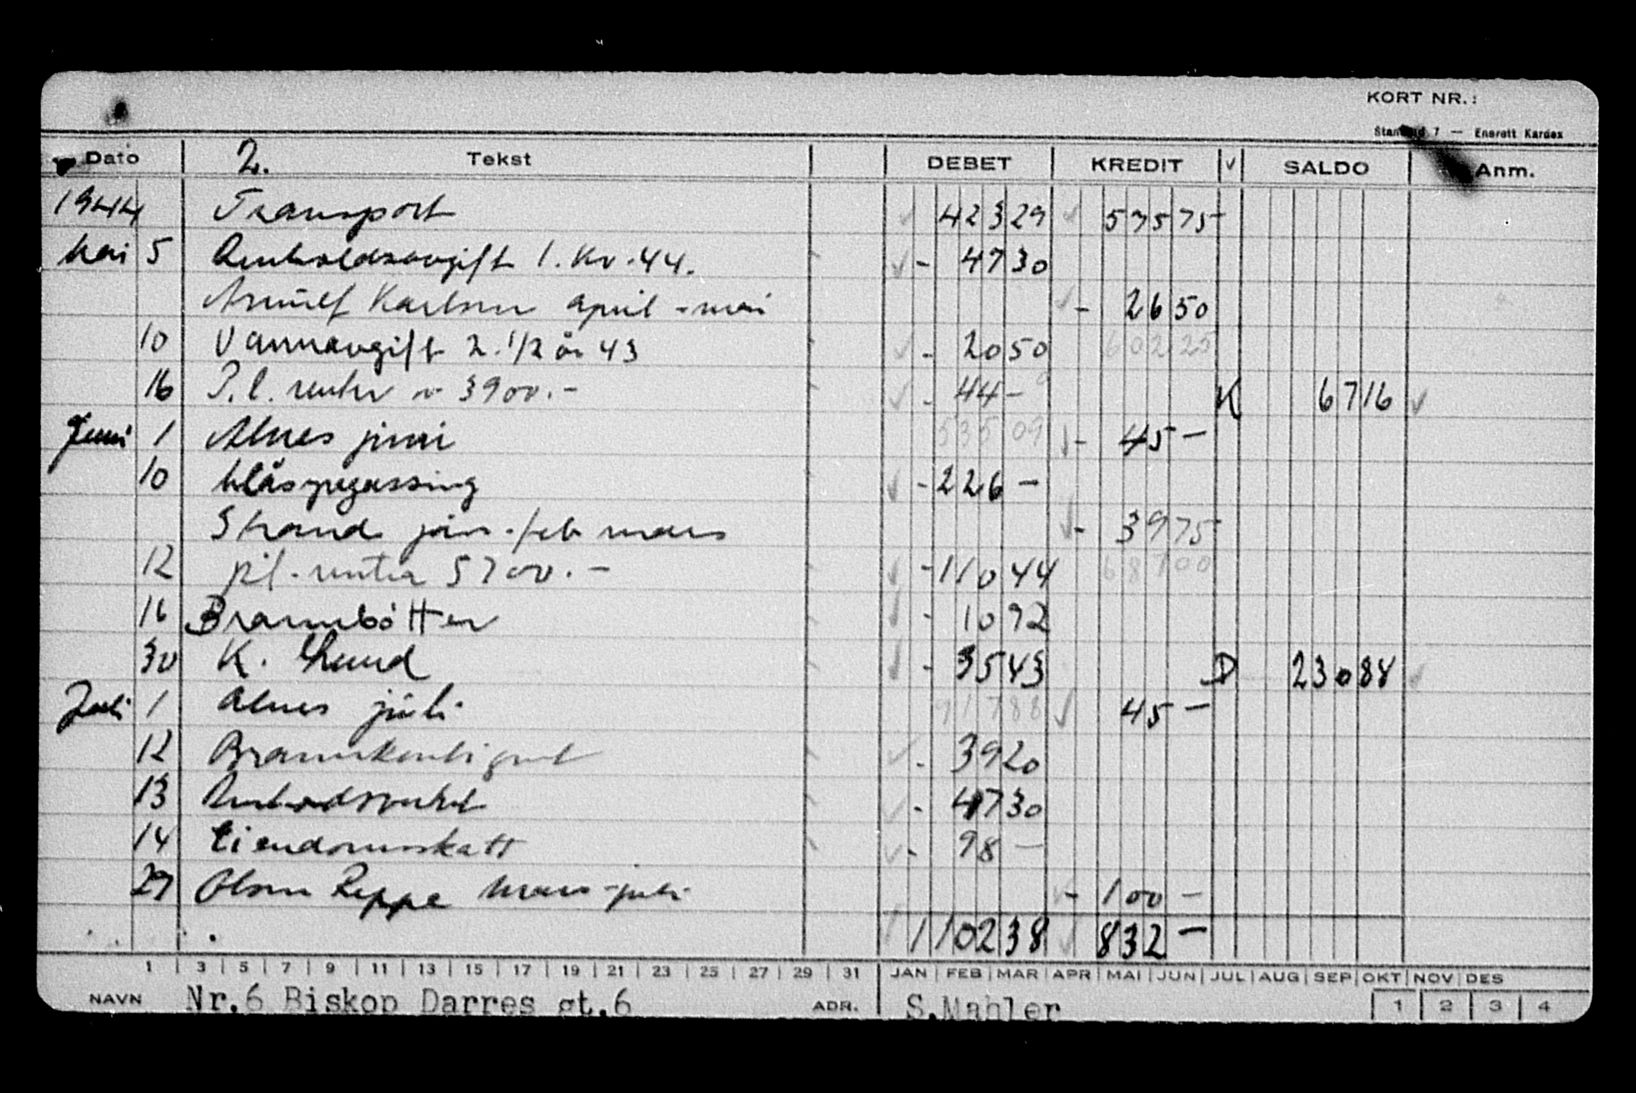 KORT NR.:
Standard 7 — Enerett Kardex
Dato 2. Tekst DEBET KREDIT √ SALDO Anm.
1944 Transport 42329 57575
Mai 5 Renholdsavgift 1. Kv. 44. - 4730
Arnulf Karlsen april - mai - 2650
10 Vannavgift 2. 1/2 år 43 - 2050 60225
16 P.l. renter 3900.- - 44 - K 6716
Juni 1 Alnes juni 53509 - 45 -
10 blåsyregassing - 226 -
Strand jan.-feb mars - 3975
12 pl. renter 5700.- - 11044 68700
16 Brannbøtter - 1092
30 K. Lund - 3543 D 23088
Juli 1 Alnes juli 91788 45 -
12 Brannkontigent - 3920
13 Renholdsverket - 4730
14 Eiendomsskatt - 98 -
27 Olsen Reppe Mars-juli - 100 -
110238 832 -
1 3 5 7 9 11 13 15 17 19 21 23 25 27 29 31 JAN FEB MAR APR MAI JUN JUL AUG SEP OKT NOV DES
NAVN Nr.6 Biskop Darres gt.6 ADR. S.Mahler 1 2 3 4